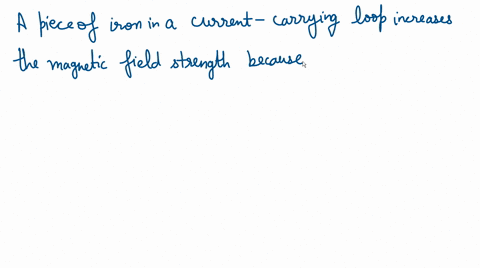 A piece of iron in a current-carrying loop increases
the magnetic field strength because